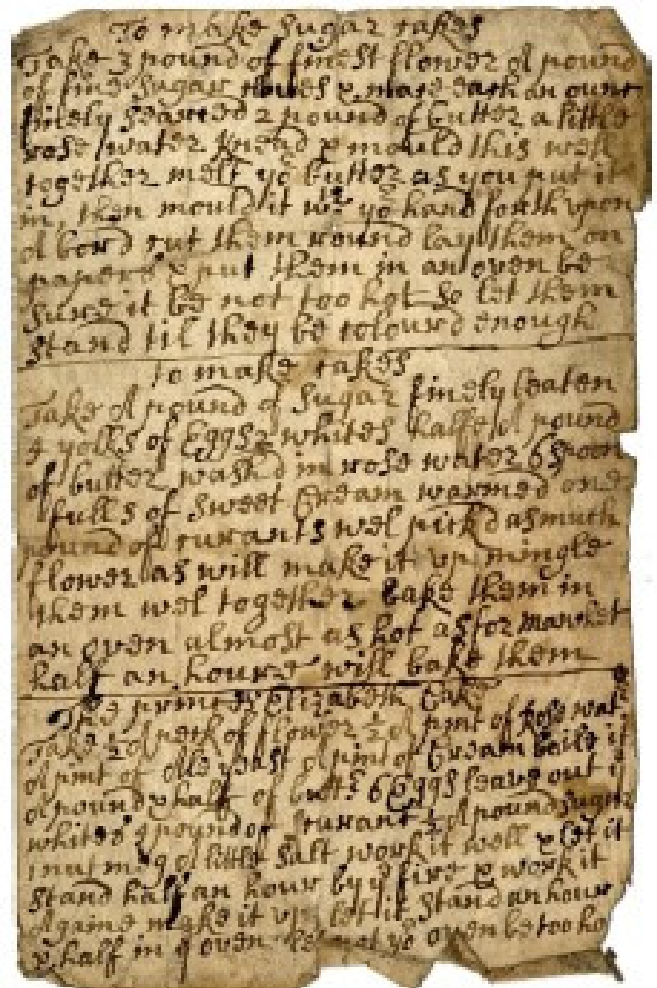 To make Sugar Cakes
Take 3 pound of finest flower A pound
of fine Sugar Cloves & mace each an ounc
finely Searced 2 pound of butter a little
rose water knead & mould this well
together melt ye butter as you put it
in, then mould it wth ye hand forth upon
A bord cut them round lay them on
papers & put them in an oven be
Sure it be not too hot So let them
Stand til they be coloured enough
To make Cakes
Take A pound of Sugar finely beaten
4 yolks of Eggs 2 whites halfe A pound
of butter wash'd in rose water 6 Spoon
fulls of Sweet Cream warmed one
pound of Currants wel pick'd as much
flower as will make it up mingle
them wel together bake them in
an oven almost as hot as for manchet
half an houre will bake them
The princes Elizabeth Cake
Take ½ A peck of flower ½ A pint of Rose wat
A pint of Ale yeast A pint of Cream boile it
A pound & half of buttr 6 Eggs leave out ye
whites 4 pound of Currants ½ A pound Sugar
1 nutmeg A little Salt work it well & let it
Stand half an hour by ye fire & work it
Againe make it up let it Stand an hour
& half in ye oven let not yo oven be too ho